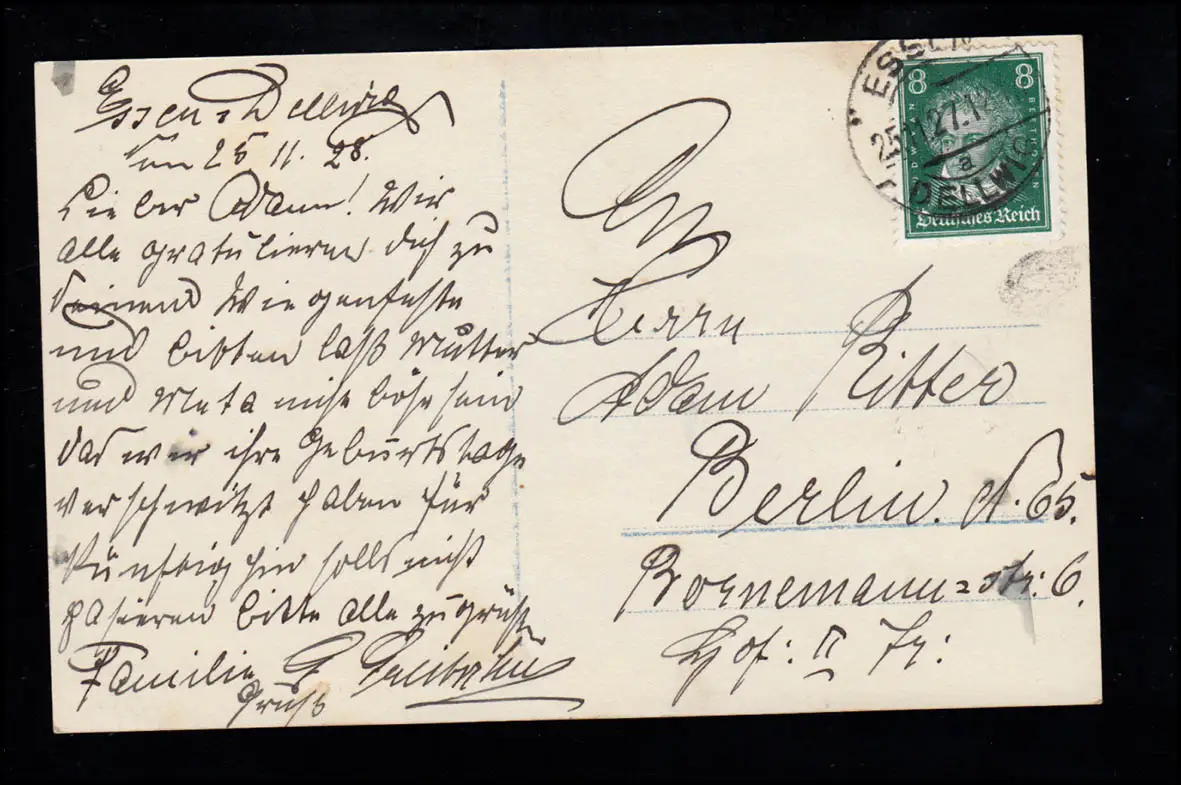 Essen-Dellwig
den 25 11. 28.
Lieber Adam! Wir
alle gratulieren dich zu
deinem Wiegenfeste
und bitten laß Mutter
und Meta nicht böse sein
das wir ihre Geburtstage
verschwitzt haben für
künftig hin solls nicht
pasieren bitte alle zu grüßen
Familie G
Gruß
An
Herrn
Adam Ritter
Berlin. N. 65.
Bornemann=str: 6.
Hof: II Tr:
ESSEN
25.11.27.12
a
DELLWIG
8 8
LUDWIG VAN BEETHOVEN
Deutsches Reich